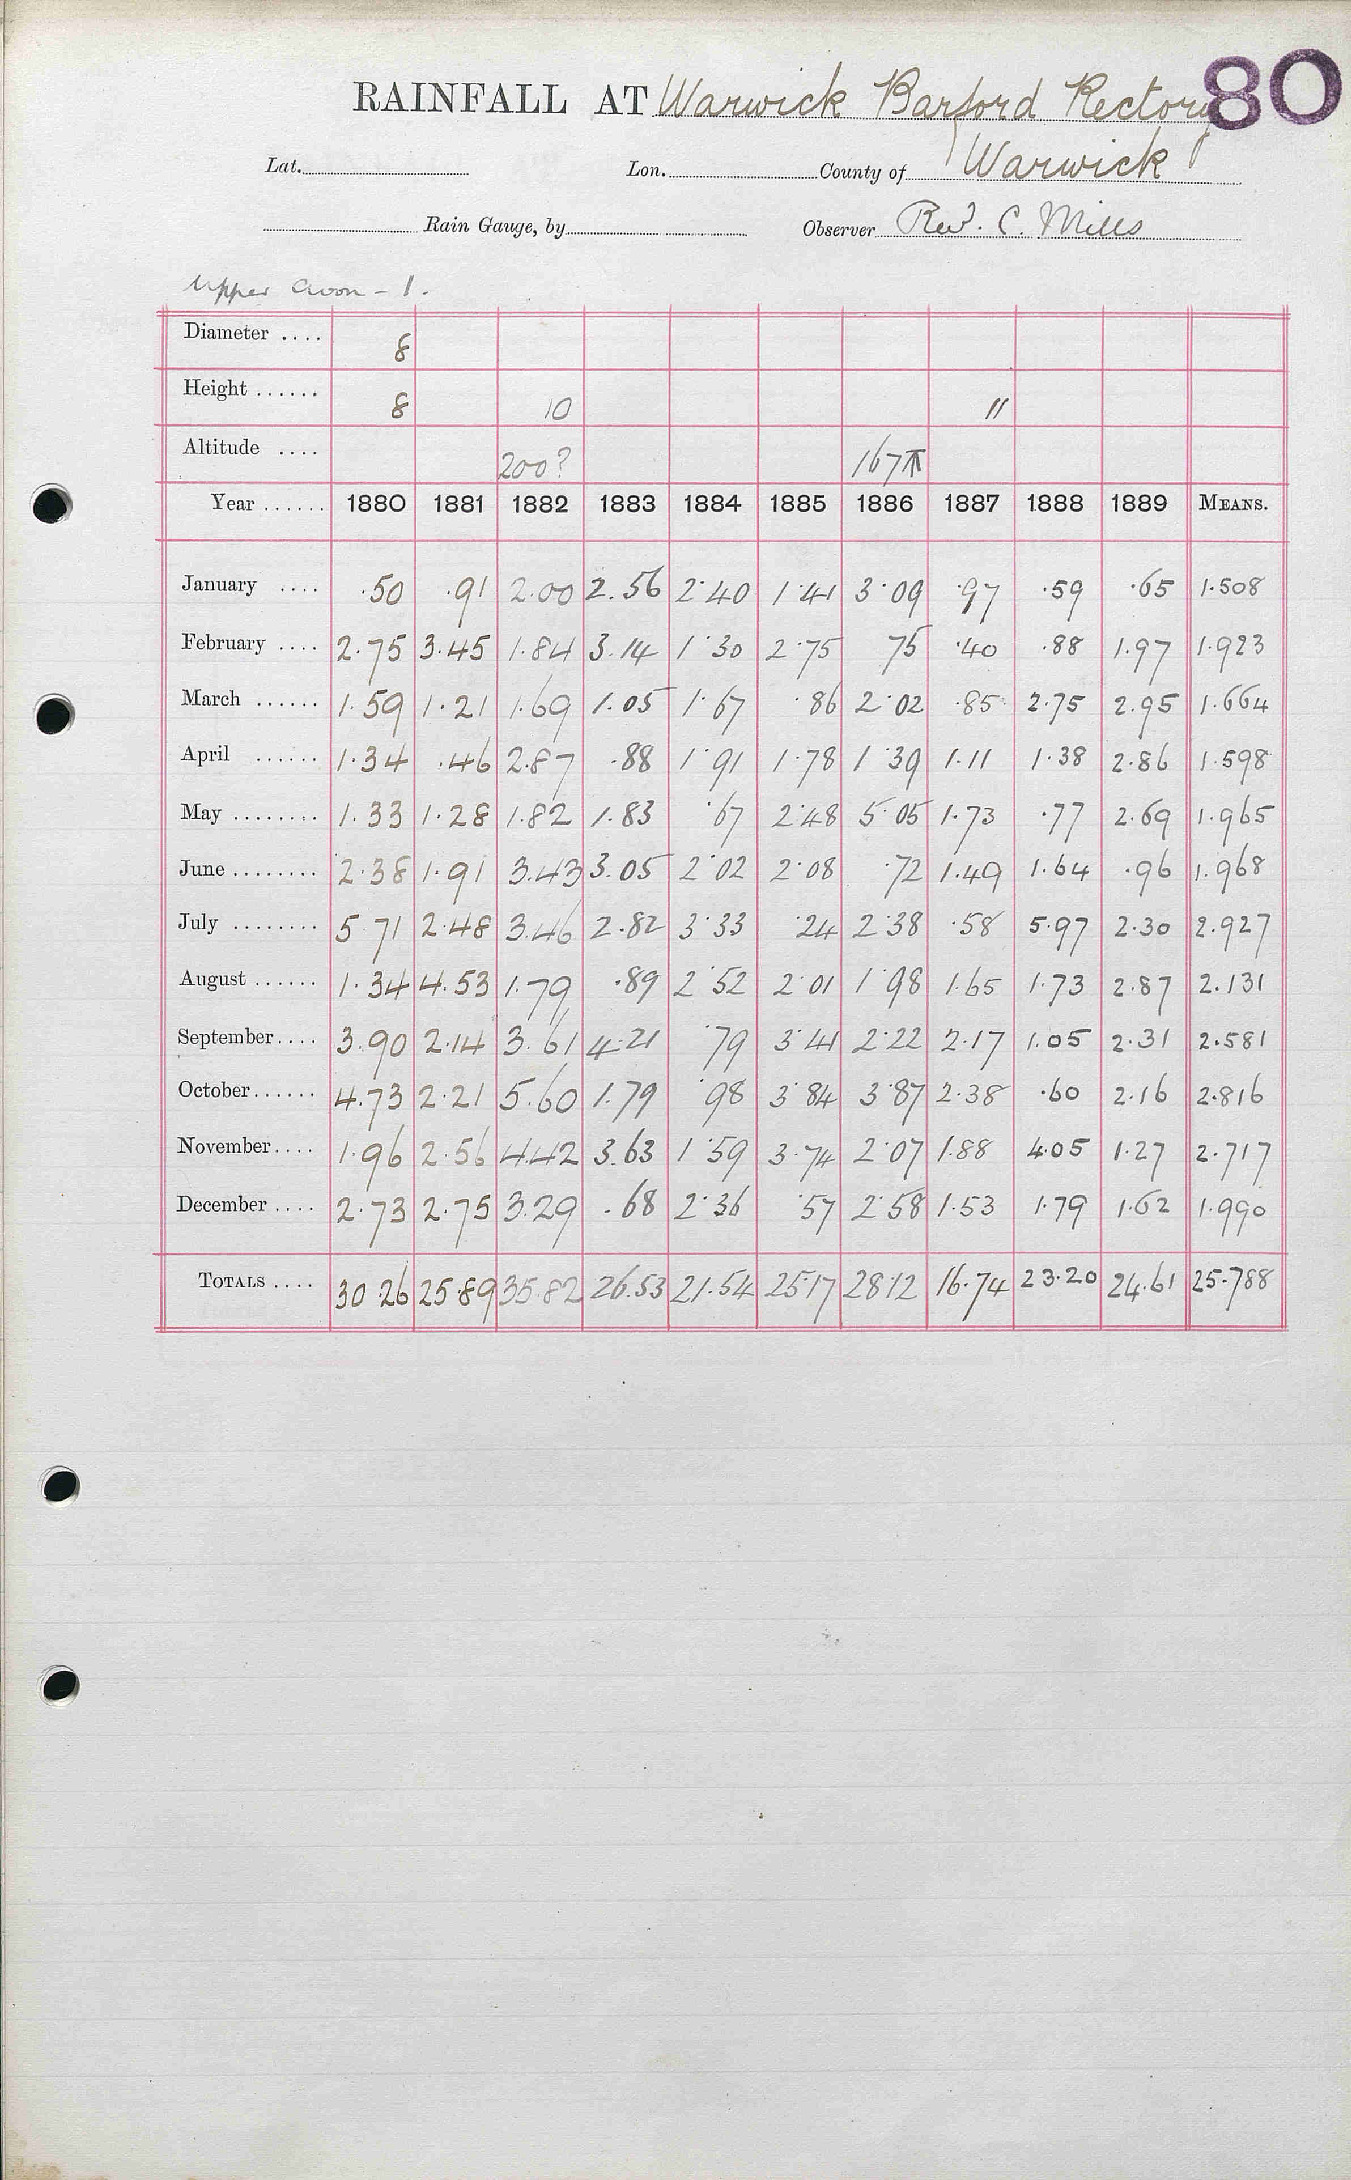 RAINFALL AT Warwick Barford Rectory 80
Lat. Lon. County of Warwick
Rain Gauge, by Observer Revd. C. Mills
Upper Avon - 1.
Diameter .... 8
Height ...... 8 10 11
Altitude .... 200? 167
Year ...... 1880 1881 1882 1883 1884 1885 1886 1887 1888 1889 MEANS.
January .... .50 .91 2.00 2.56 2.40 1.41 3.09 .97 .59 .65 1.508
February .... 2.75 3.45 1.84 3.14 1.30 2.75 75 .40 .88 1.97 1.923
March ...... 1.59 1.21 1.69 1.05 1.67 .86 2.02 .85 2.75 2.95 1.664
April ...... 1.34 .46 2.87 .88 1.91 1.78 1.39 1.11 1.38 2.86 1.598
May ........ 1.33 1.28 1.82 1.83 .67 2.48 5.05 1.73 .77 2.69 1.965
June ........ 2.38 1.91 3.43 3.05 2.02 2.08 .72 1.49 1.64 .96 1.968
July ........ 5 71 2.48 3.46 2.82 3.33 .24 2.38 .58 5.97 2.30 2.927
August ...... 1.34 4.53 1.79 .89 2.52 2.01 1.98 1.65 1.73 2.87 2.131
September .... 3.90 2.14 3.61 4.21 .79 3.41 2.22 2.17 1.05 2.31 2.581
October ...... 4.73 2.21 5.60 1.79 .98 3.84 3.87 2.38 .60 2.16 2.816
November .... 1.96 2.56 4.42 3.63 1.59 3.74 2.07 1.88 4.05 1.27 2.717
December .... 2.73 2.75 3.29 .68 2.36 .57 2.58 1.53 1.79 1.62 1.990
TOTALS .... 30.26 25.89 35.82 26.53 21.54 25.17 28.12 16.74 23.20 24.61 25.788